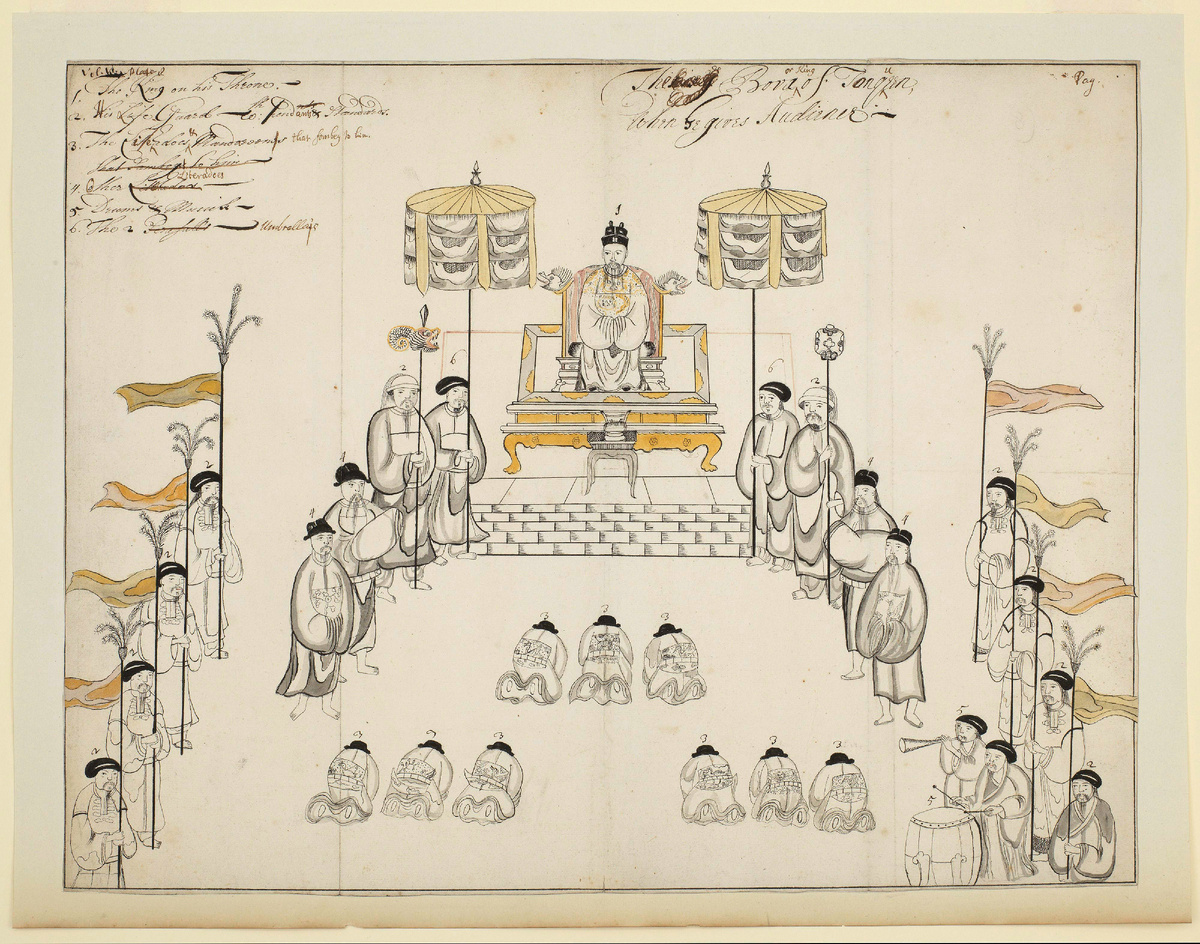 Plate 2
1. The King on his Throne.
2. His Life Guard with Standards.
3. The Literadoes Mandareens that sombey to him
that Sombey to him
4. Other Literadoes
5. Drums & Musick
6. The 2 Umbrella's
The Bova or King of Tonquin
When he gives Audience
Pag.
1
2
6
6
2
4
4
4
4
2
2
2
2
2
2
2
2
3
3
3
3
3
3
3
3
3
5
5